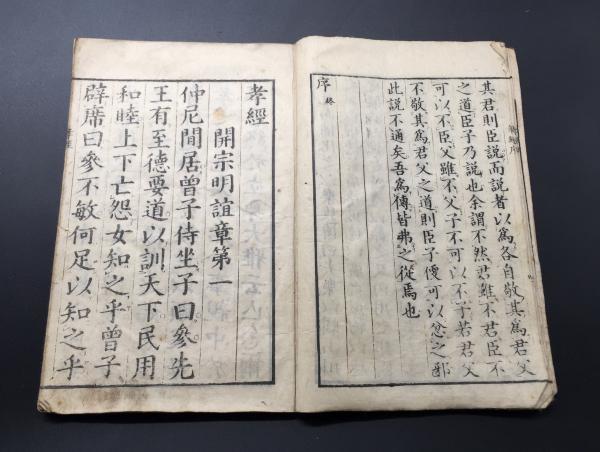 其君則臣說而說者以爲各自敬其爲君父
之道臣子乃說也余謂不然君雖不君臣不
可以不臣父雖不父子不可以不子若君父
不敬其爲君父之道則臣子便可以忿之邪
此說不通矣吾爲傳皆弗之從焉也
序終
孝經
開宗明誼章第一
仲尼閒居曾子侍坐子曰參先
王有至德要道以訓天下民用
和睦上下亡怨女知之乎曾子
辟席曰參不敏何足以知之乎